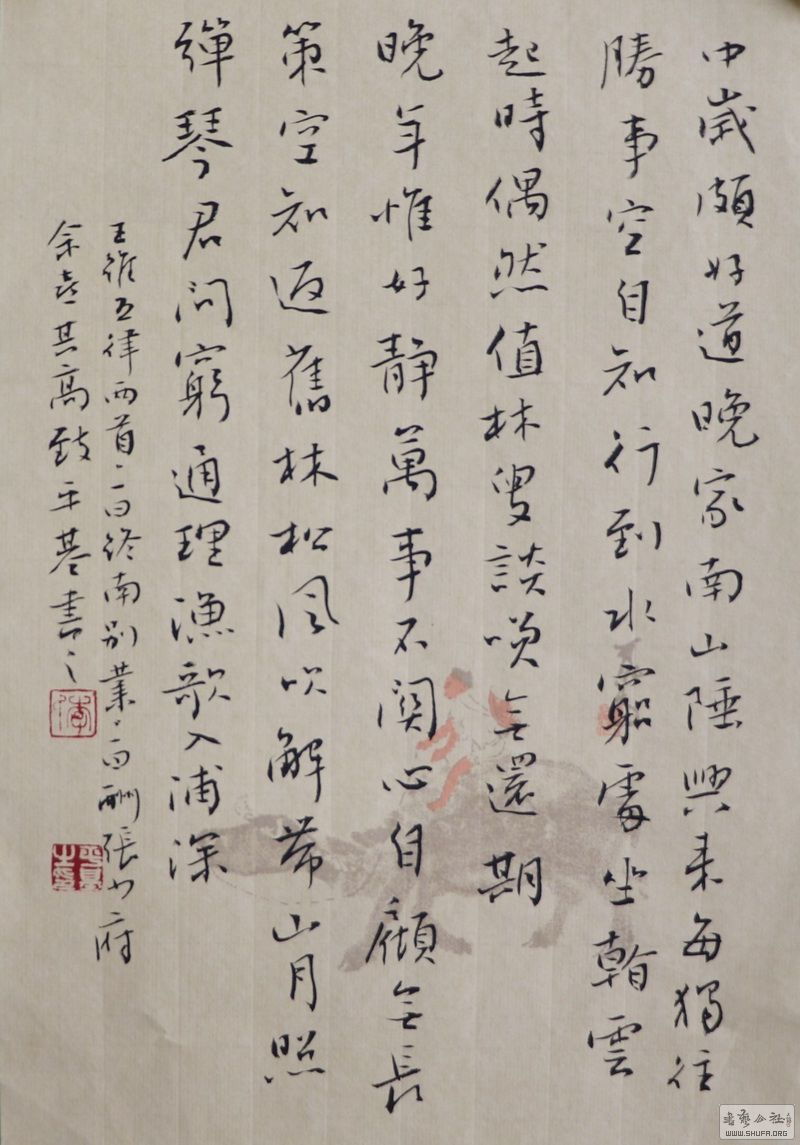 中歲頗好道晚家南山陲興來每獨往
勝事空自知行到水窮處坐看雲
起時偶然值林叟談咲無還期
晚年惟好靜萬事不關心自顧無長
策空知返舊林松風吹解帶山月照
彈琴君問窮通理漁歌入浦深
王維五律兩首一曰終南別業一曰酬張少府
余喜其高致平基書之
書藝公社
WWW.SHUFA.ORG